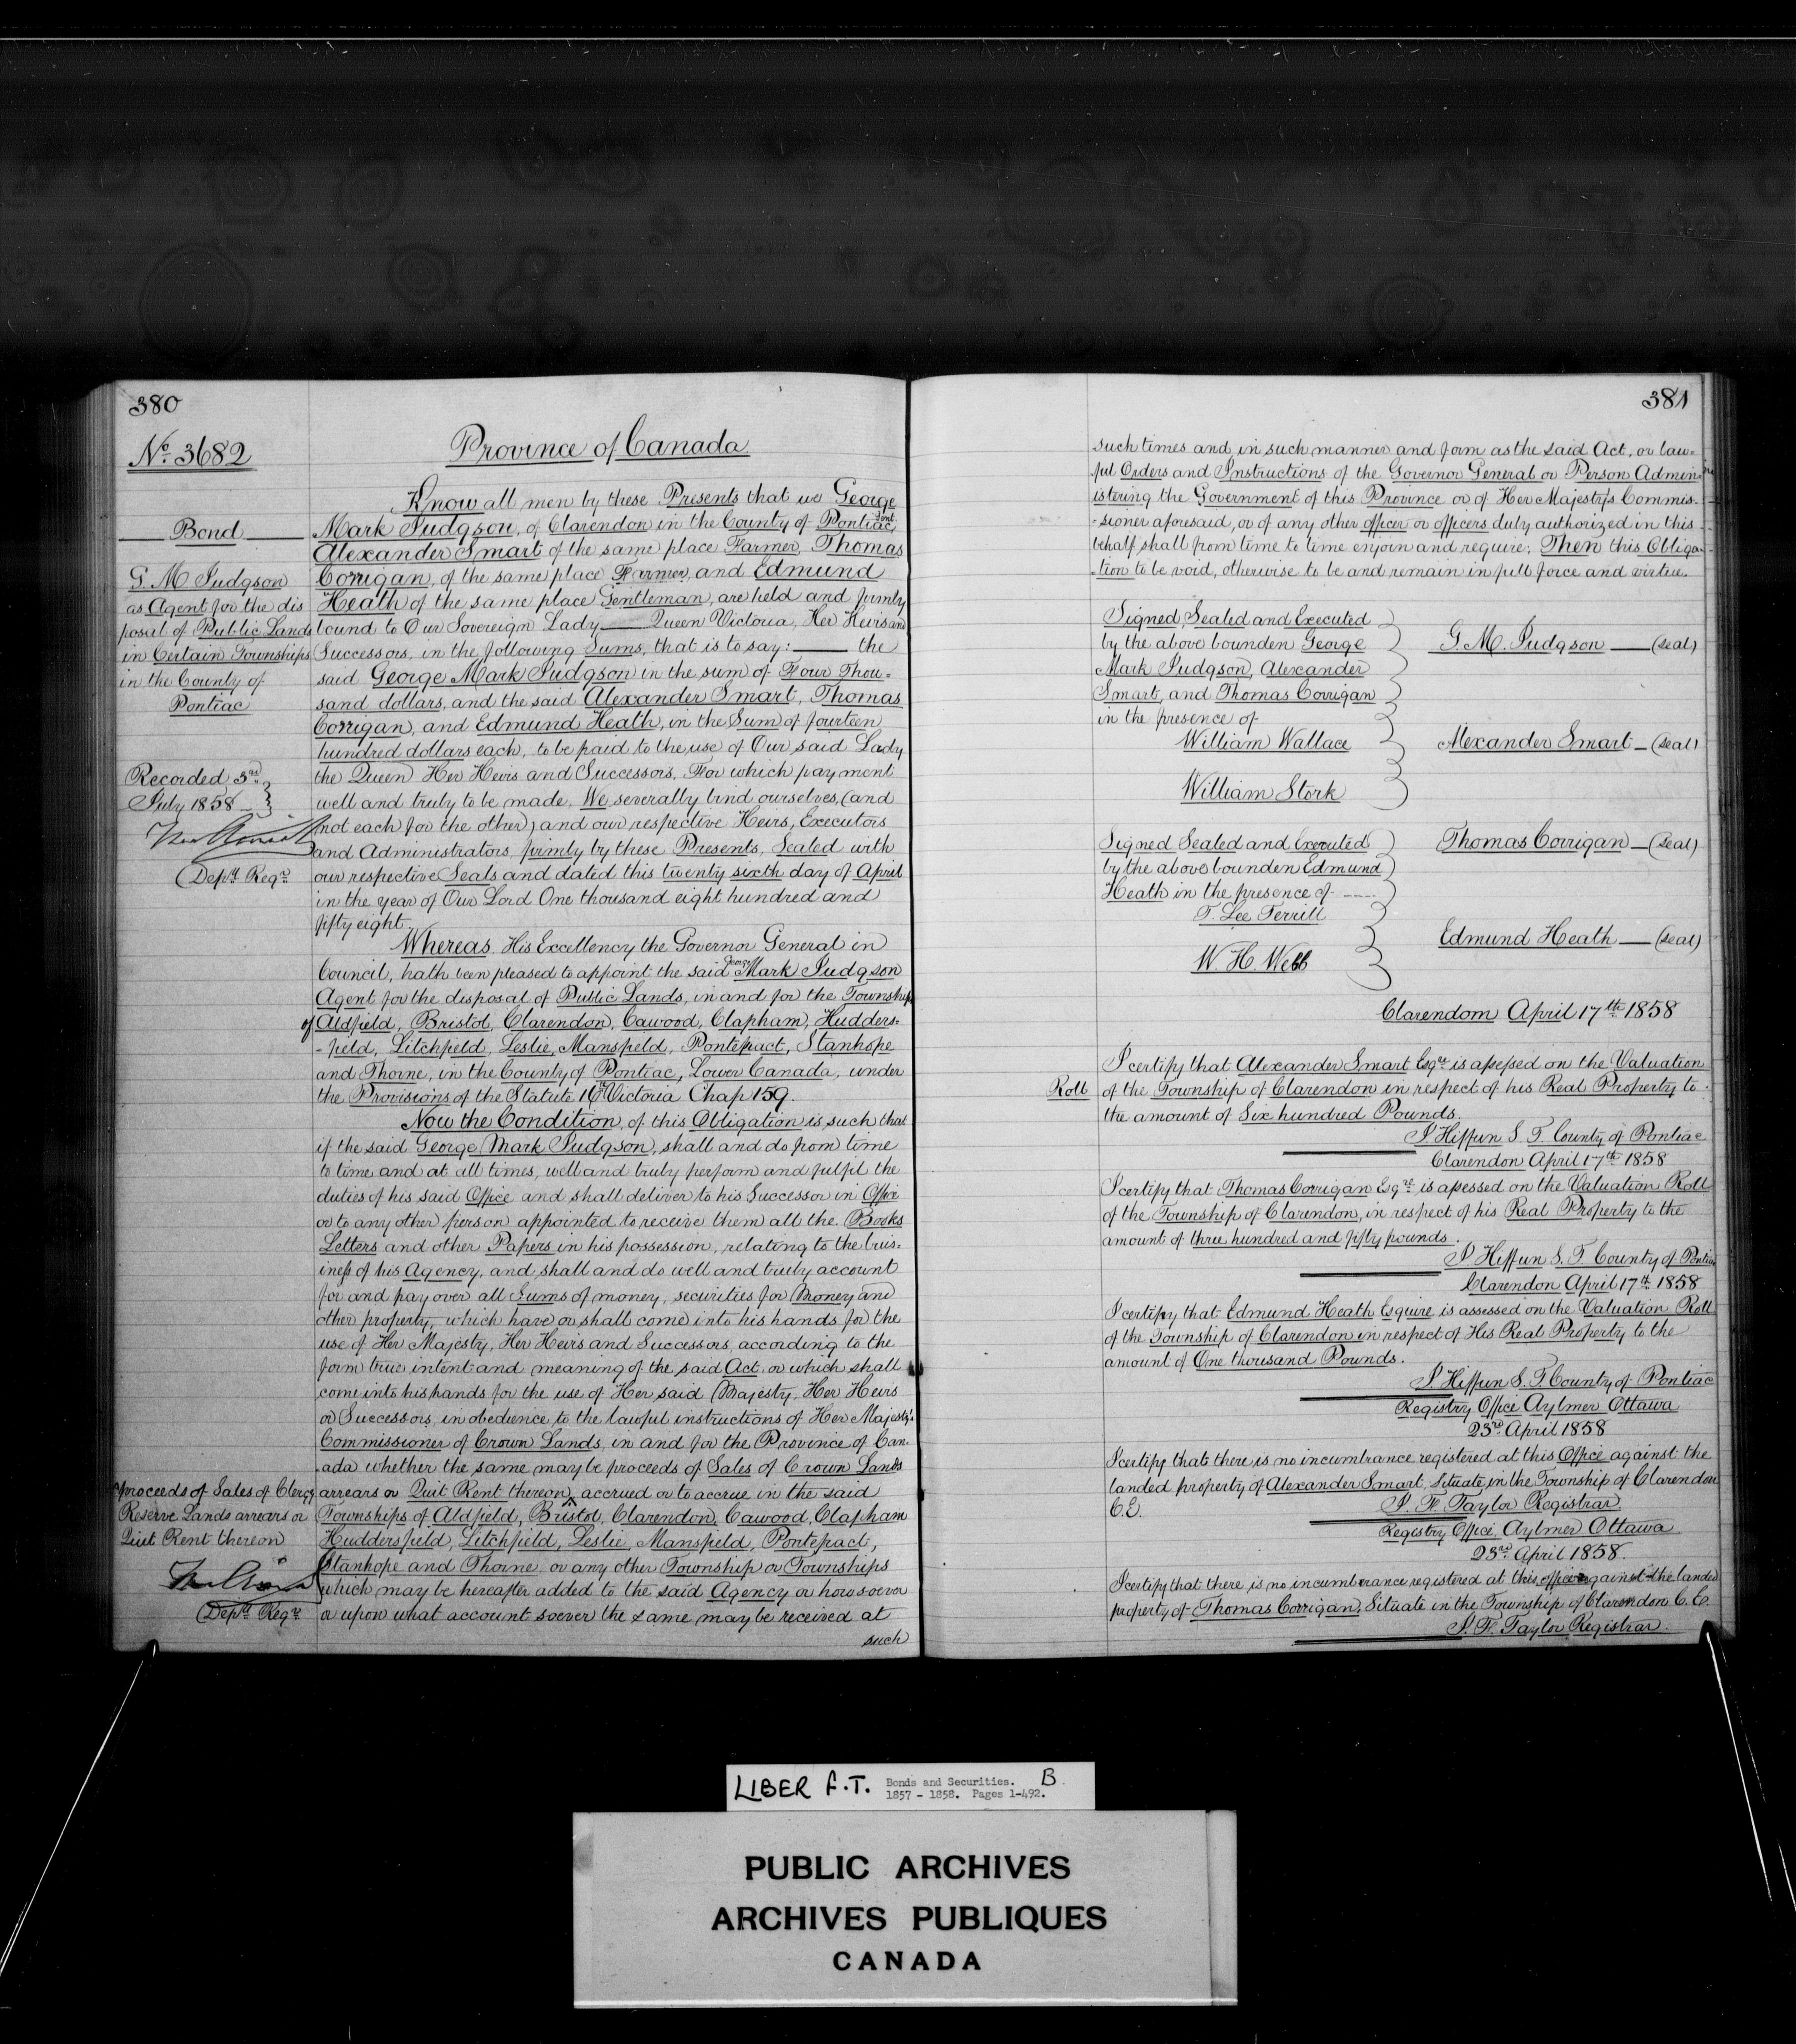 380
No. 3682
Province of Canada
Know all men by these Presents that we George
Bond
Mark Judgson, of Clarendon in the County of Pontiac, Gent.
Alexander Smart of the same place Farmer, Thomas
Corrigan, of the same place Farmer, and Edmund
Heath of the same place Gentleman, are held and firmly
bound to Our Sovereign Lady Queen Victoria, Her Heirs and
Successors, in the following Sums, that is to say: the
said George Mark Judgson in the sum of Four Thou-
sand dollars, and the said Alexander Smart, Thomas
Corrigan, and Edmund Heath, in the Sum of fourteen
hundred dollars each, to be paid to the use of Our said Lady
the Queen Her Heirs and Successors, For which payment
well and truly to be made, We severally bind ourselves, (and
not each for the other) and our respective Heirs, Executors
and Administrators firmly by these Presents, Sealed with
our respective Seals and dated this twenty sixth day of April
in the year of Our Lord One thousand eight hundred and
fifty eight.
G. M Judgson
as Agent for the dis
posal of Public Lands
in Certain Townships
in the County of
Pontiac
Recorded 3rd
July 1858
Depy. Regr.
Whereas His Excellency the Governor General in
Council, hath been pleased to appoint the said George Mark Judgson
Agent for the disposal of Public Lands, in and for the Township
of Aldfield, Bristol, Clarendon, Cawood, Clapham, Hudders-
-field, Litchfield, Leslie, Mansfield, Pontefract, Stanhope
and Thorne, in the County of Pontiac, Lower Canada, under
the Provisions of the Statute 16th Victoria Chap 159.
Now the Condition, of this Obligation is such that
if the said George Mark Judgson, shall and do from time
to time and at all times, well and truly perform and fulfil the
duties of his said Office and shall deliver to his Successor in Office
or to any other person appointed to receive them all the Books
Letters and other Papers in his possession, relating to the bus-
iness of his Agency, and shall and do well and truly account
for and pay over all Sums of money, securities for Money and
other property, which have or shall come into his hands for the
use of Her Majesty, Her Heirs and Successors, according to the
form true intent and meaning of the said Act. or which shall
come into his hands for the use of Her said Majesty, Her Heirs
or Successors, in obedience to the lawful instructions of Her Majesty's
Commissioner of Crown Lands, in and for the Province of Can-
-ada whether the same may be proceeds of Sales of Crown Lands
arrears or Quit Rent thereon, accrued or to accrue in the said
Townships of Aldfield, Bristol, Clarendon, Cawood, Clapham
Huddersfield, Litchfield, Leslie, Mansfield, Pontefract,
Stanhope and Thorne, or any other Township or Townships
which may be hereafter added to the said Agency or howsoever
or upon what account soever the same may be received at
such
proceeds of Sales of Clergy
Reserve Lands arrears or
Quit Rent thereon
Depy. Regr.
381
such times and in such manner and form as the said Act, or law-
ful Orders and Instructions of the Governor General or Person Admin-
istering the Government of this Province or of Her Majesty's Commis-
-sioner aforesaid, or of any other officer or officers duly authorized in this
behalf shall from time to time enjoin and require; Then this Obliga-
-tion to be void, otherwise to be and remain in full force and virtue.
Signed, Sealed and Executed
by the above bounden George
Mark Judgson, Alexander
Smart, and Thomas Corrigan
in the presence of
William Wallace
William Stork
G. M. Judgson (seal)
Alexander Smart (seal)
Thomas Corrigan (seal)
Signed Sealed and Executed
by the above bounden Edmund
Heath in the presence of
T. Lee Terrill
W. H. Webb
Edmund Heath (seal)
Clarendom April 17th 1858
I certify that Alexander Smart Esqre is assessed on the Valuation
Roll of the Township of Clarendon in respect of his Real Property to
the amount of Six hundred Pounds.
J Heffun S. T. County of Pontiac
Clarendon April 17th 1858
I certify that Thomas Corrigan Esqre is assessed on the Valuation Roll
of the Township of Clarendon, in respect of his Real Property to the
amount of three hundred and fifty pounds.
J Heffun S. T. County of Pontiac
Clarendon April 17th 1858
I certify that Edmund Heath Esquire is assessed on the Valuation Roll
of the Township of Clarendon in respect of His Real Property to the
amount of One thousand Pounds.
J Heffun S. T. County of Pontiac
Registry Office Aylmer Ottawa
23rd April 1858
I certify that there is no incumbrance registered at this Office against the
landed property of Alexander Smart, Situate in the Township of Clarendon
C.E.
J. F. Taylor Registrar
Registry Office, Aylmer Ottawa
23rd April 1858.
I certify that there is no incumbrance registered at this office against the landed
property of Thomas Corrigan, Situate in the Township of Clarendon C. E.
J. F. Taylor Registrar.
LIBER F.T. Bonds and Securities. B.
1857 - 1858. Pages 1-492.
PUBLIC ARCHIVES
ARCHIVES PUBLIQUES
CANADA